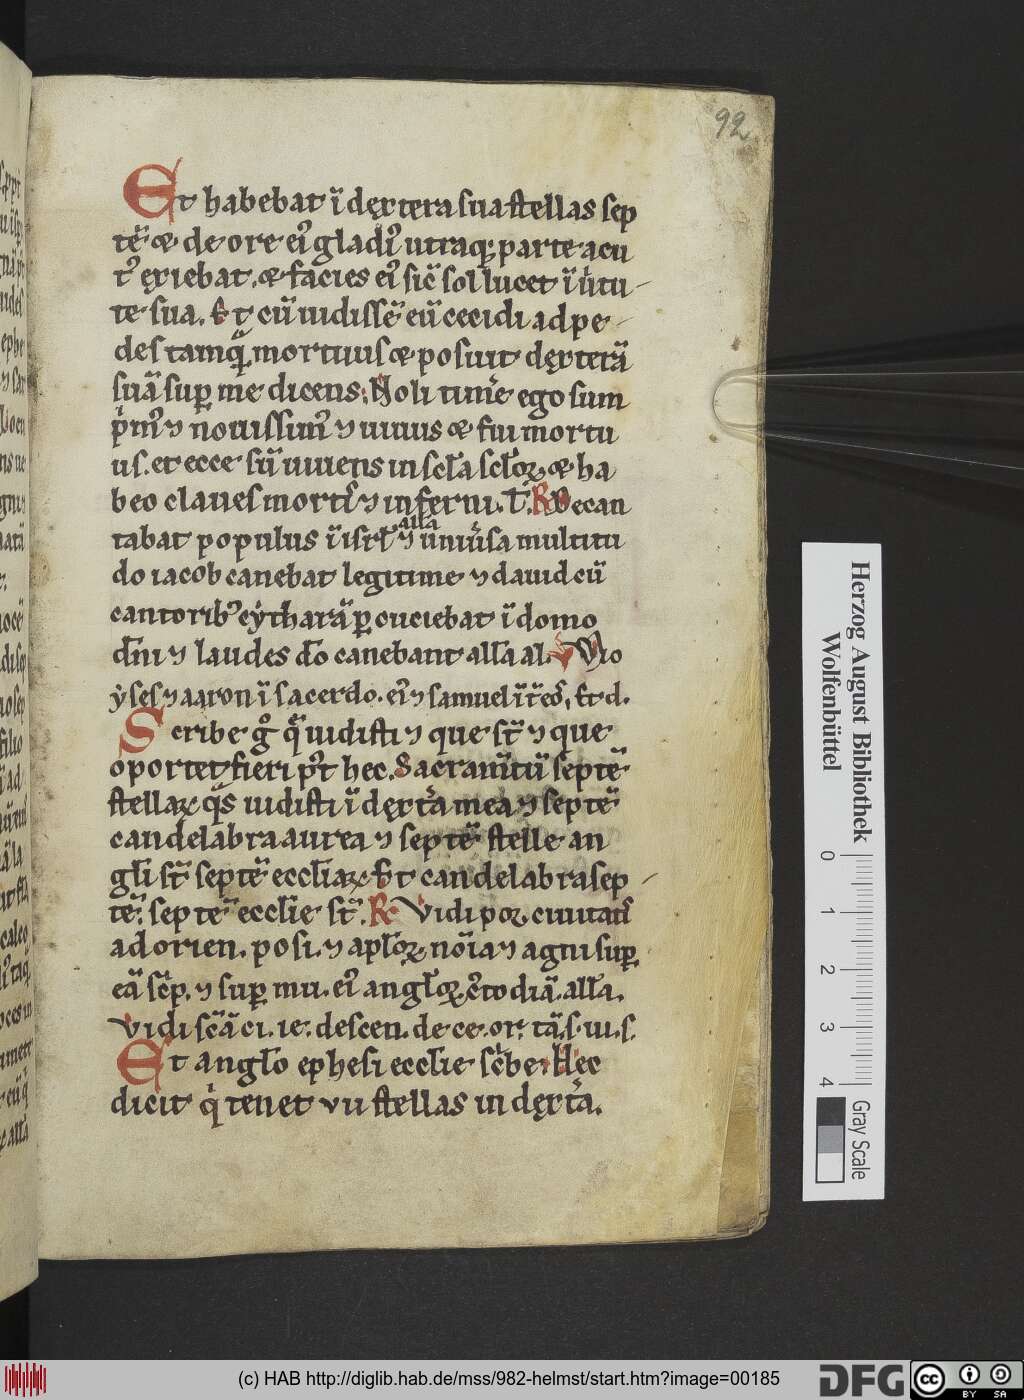 92
Et habebat ī dęxtera sua stellas sep
tē & de ore eiꝰ gladiꝰ utraqꝫ parte acu
tꝰ ęxiebat. & facies eiꝰ sic̄ sol lucet ī uͥtu
te sua. Et cū uidissē eū cecidi ad pe
des tamqͣ̄ mortuus & posuit dęxterā
suā suꝑ me dicens. Noli timͤe ego sum
pͥmꝰ ⁊ nouissimꝰ ⁊ uiuus & fui mortu
us. et ecce sū uiuens in scl̄a scl̄oꝝ & ha
beo claues mortıs ⁊ inferni. T. R Decan
tabat populus ī isrl̄ all̄a ⁊ uniuͥsa multitu
do iacob canebat legitime ⁊ dauid cū
cantoribꝰ cẏtharā ꝑcuciebat ī domo
dn̄i ⁊ laudes dō canebant all̄a al. V Mo
ẏses ⁊ aaron ī sacerdo. eiꝰ ⁊ samuel īt̄ eos. Et d.
Scribe gͦ qͣ̄ uidisti ⁊ que st̄ ⁊ que
oportet fieri pꝰt hec. Sacram̄tū septē
stellaꝝ qͣs uidisti ī dęxtͥa mea ⁊ septē
candelabra aurea ⁊ septē stelle an
gl̄i st̄ septē eccl̄iaꝝ Et candelabra sep
tē. septē eccl̄ie st̄. R Vidi poꝝ. ciuitatıs
ad orien. posi. ⁊ apl̄oꝝ nōia ⁊ agni suꝑ
eā sc̄p. ⁊ suꝑ mu. eiꝰ angl̄oꝝ c̄todiā. all̄a.
Vidi sc̄ā ci. ie. descen. de ce. or. tā. s. ui. s.
Et angl̄o ephesi eccl̄ie sc̄be. Hec
dicit qͥ tenet vii stellas in dęxtͥa.
Herzog August Bibliothek
Wolfenbüttel
0 1 2 3 4
Gray Scale
(c) HAB http://diglib.hab.de/mss/982-helmst/start.htm?image=00185
DFG
cc BY SA